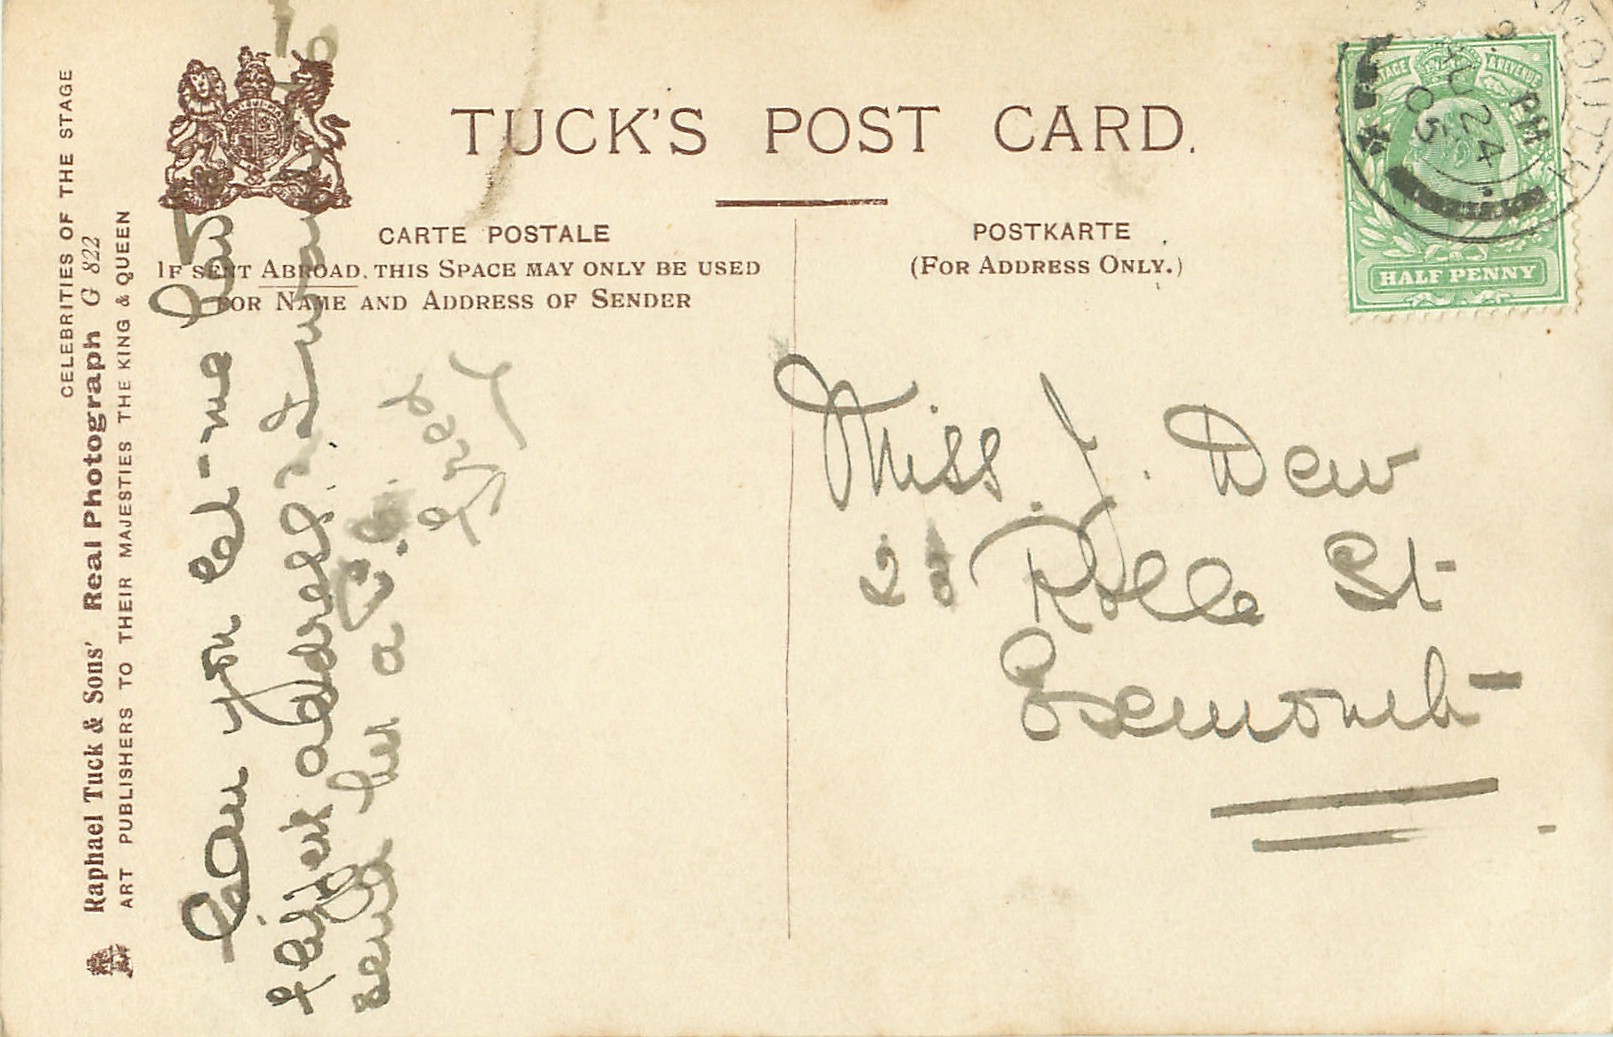 TUCK'S POST CARD.
CARTE POSTALE
IF SENT ABROAD, THIS SPACE MAY ONLY BE USED
FOR NAME AND ADDRESS OF SENDER
POSTKARTE
(FOR ADDRESS ONLY.)
CELEBRITIES OF THE STAGE
Raphael Tuck & Sons' Real Photograph G 822
ART PUBLISHERS TO THEIR MAJESTIES THE KING & QUEEN
POSTAGE & REVENUE
HALF PENNY
MOUTH
PM
AU 24
05
Can you let me have
address I want to
send her a P.C.
Fred
Miss J. Dew
Rolle St
Exmouth